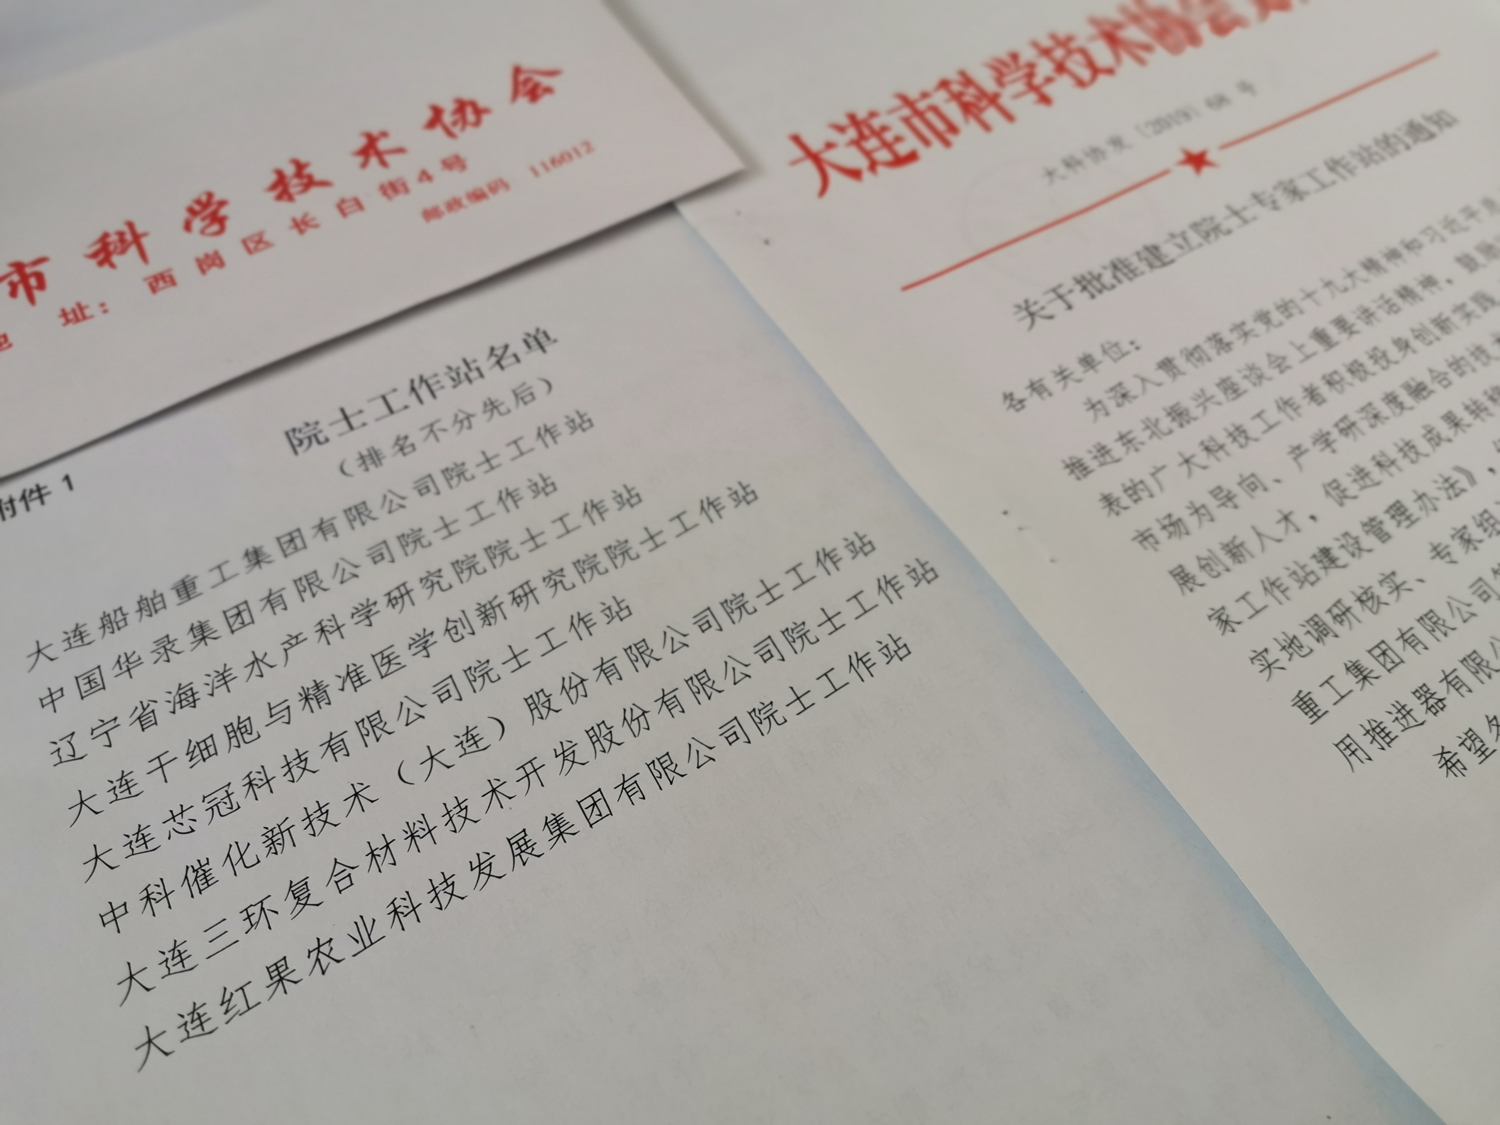 市科学技术协会
址：西岗区长白街4号
邮政编码 116012
附件 1
院士工作站名单
（排名不分先后）
大连船舶重工集团有限公司院士工作站
中国华录集团有限公司院士工作站
辽宁省海洋水产科学研究院院士工作站
大连干细胞与精准医学创新研究院院士工作站
大连芯冠科技有限公司院士工作站
中科催化新技术（大连）股份有限公司院士工作站
大连三环复合材料技术开发股份有限公司院士工作站
大连红果农业科技发展集团有限公司院士工作站
大连市科学技术协会
大科协发〔2019〕68 号
关于批准建立院士专家工作站的通知
各有关单位：
为深入贯彻落实党的十九大精神和习近平
推进东北振兴座谈会上重要讲话精神，鼓励
表的广大科技工作者积极投身创新实践
市场为导向、产学研深度融合的技
展创新人才，促进科技成果转
家工作站建设管理办法》，
实地调研核实、专家组
重工集团有限公司
用推进器有限
希望各